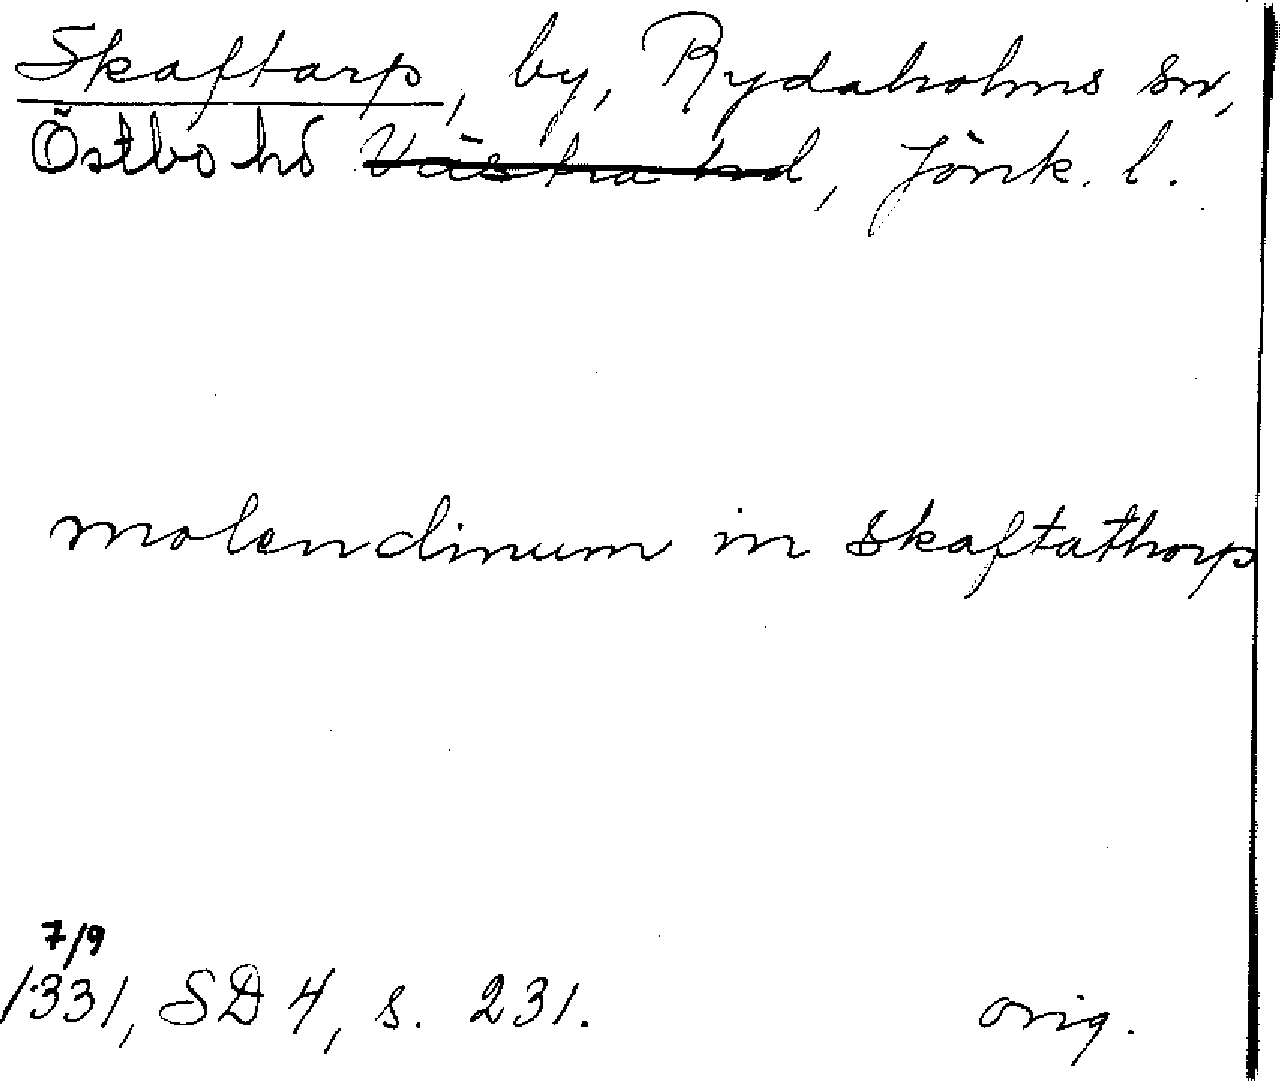 Skaftarp, by, Rydaholms sn,
Östbo hd Västra hd, Jönk. l.
molendinum in skaftathorp
7/9
1331, SD 4, s. 231. orig.